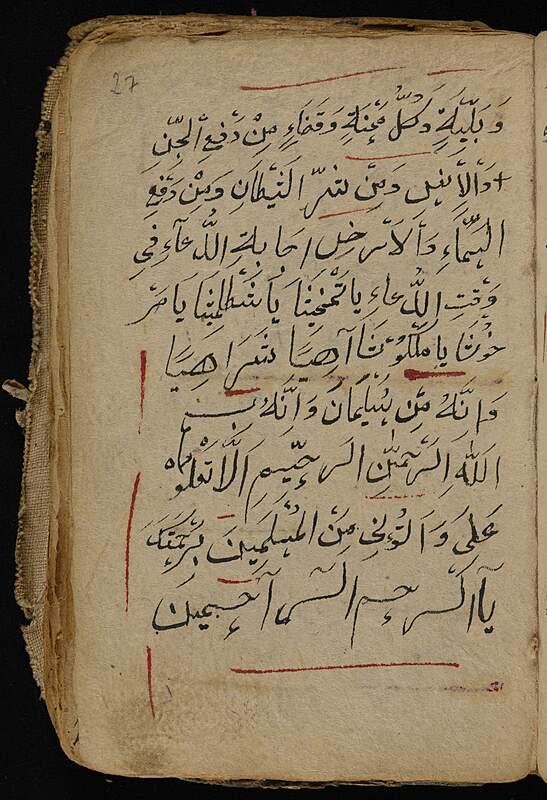 27
وَبَلِيَّةٍ وَكُلِّ مِحْنَةٍ وَقَضَاءٍ مِنْ دَفْعِ الْجِنِّ
وَالْاِنْسِ وَمِنْ شَرِّ الشَّيْطَانِ وَمِنْ دَفْعِ
السَّمَاءِ وَالْاَرْضِ اِجَابَةِ الدُّعَاءِ فِي
وَقْتِ الدُّعَاءِ يَا تَمْخِيثَا يَا
يَا مَلَكُوثَا آهِيًا شَرَاهِيًا
وَاِنَّهُ مِنْ سُلَيْمَانَ وَاِنَّهُ بِسْمِ
اللّٰهِ الرَّحْمٰنِ الرَّحِيمِ اَلَّا تَعْلُوا
عَلَيَّ وَأْتُونِي مُسْلِمِينَ بِرَحْمَتِكَ
يَا اَرْحَمَ الرَّاحِمِينَ